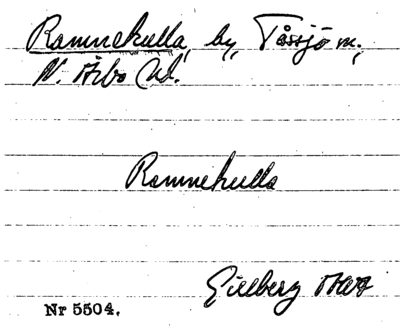 Ramnekulla, by, Tåssjö sn.,
N. Åsbo hd.
Ramnekulla
Gillberg
Nr 5504.